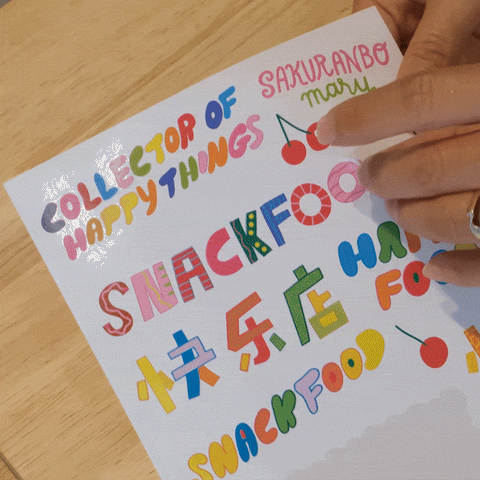 SAKURANBO
mary
COLLECTOR OF
HAPPY THINGS
SNACKFOO
快乐店
FOO
SNACKFOOD